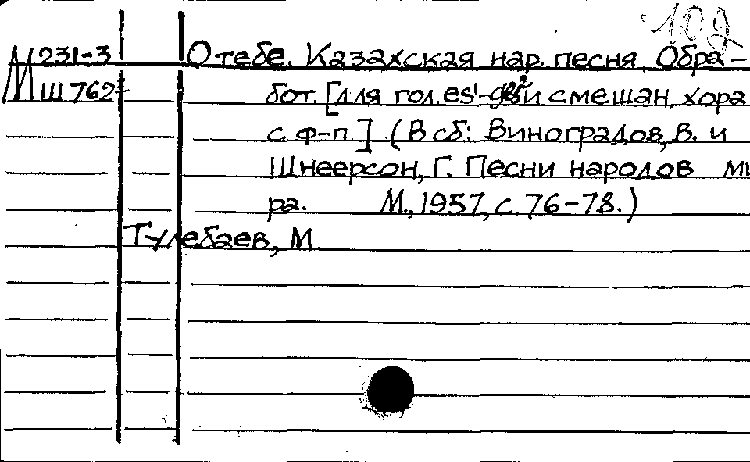 109
М 231-3 О тебе. Казахская нар. песня Обра-
Ш 762 бот. [для гол. es¹-ges² и смешан. хора
с ф-п.] (В сб: Виноградов, В. и
Шнеерсон, Г. Песни народов ми
ра. М., 1957, с. 76-78.)
Тулебаев, М